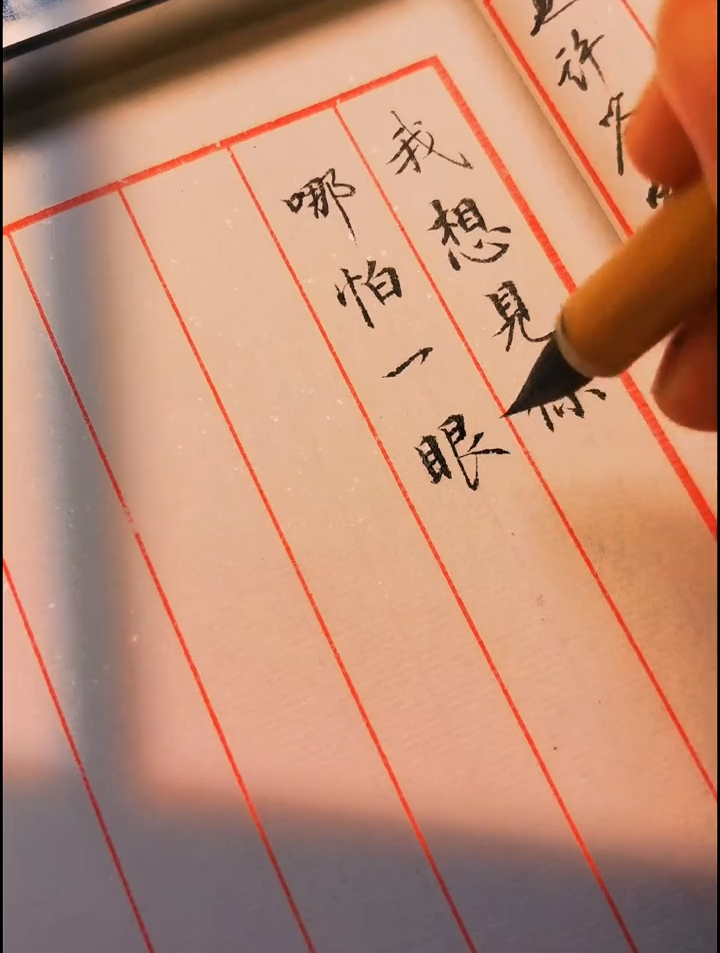 許
我想見你
哪怕一眼